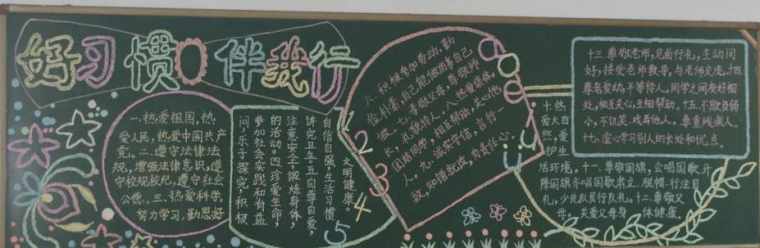 好习惯伴我行
一、热爱祖国,热
爱人民,热爱中国共产
党。二、遵守法律法
规,增强法律意识,遵
守校规校纪,遵守社会
公德。三、热爱科学,
努力学习,勤思好
问,乐于探究,积极
参加社会实践和有益
的活动。四、珍爱生命,
注意安全,锻炼身体,
讲究卫生。五、自尊自爱,
自信自强,生活习惯
文明健康。
1
2
3
4
5
六、积极参加劳动,勤
俭朴素,自己能做的事自己
做。七、孝敬父母,尊敬师
长,礼貌待人。八、热爱集体,
团结同学,互相帮助,关心他
人。九、诚实守信,言行一
致,知错就改,有责任心。
十、热
爱大
自然,
爱护生
活环境。十一、尊敬国旗,会唱国歌,升
降国旗奏唱国歌肃立、脱帽、行注目
礼,少先队员行队礼。十二、尊敬父
母,关爱父母身体健康,
十三、尊敬老师,见面行礼,主动问
好,接受老师教导,与老师交流。十四、
尊老爱幼,平等待人,同学之间友好相
处,互相关心,互相帮助。十五、不欺负弱
小,不讥笑、戏弄他人,尊重残疾人。
十六、虚心学习别人的长处和优点。